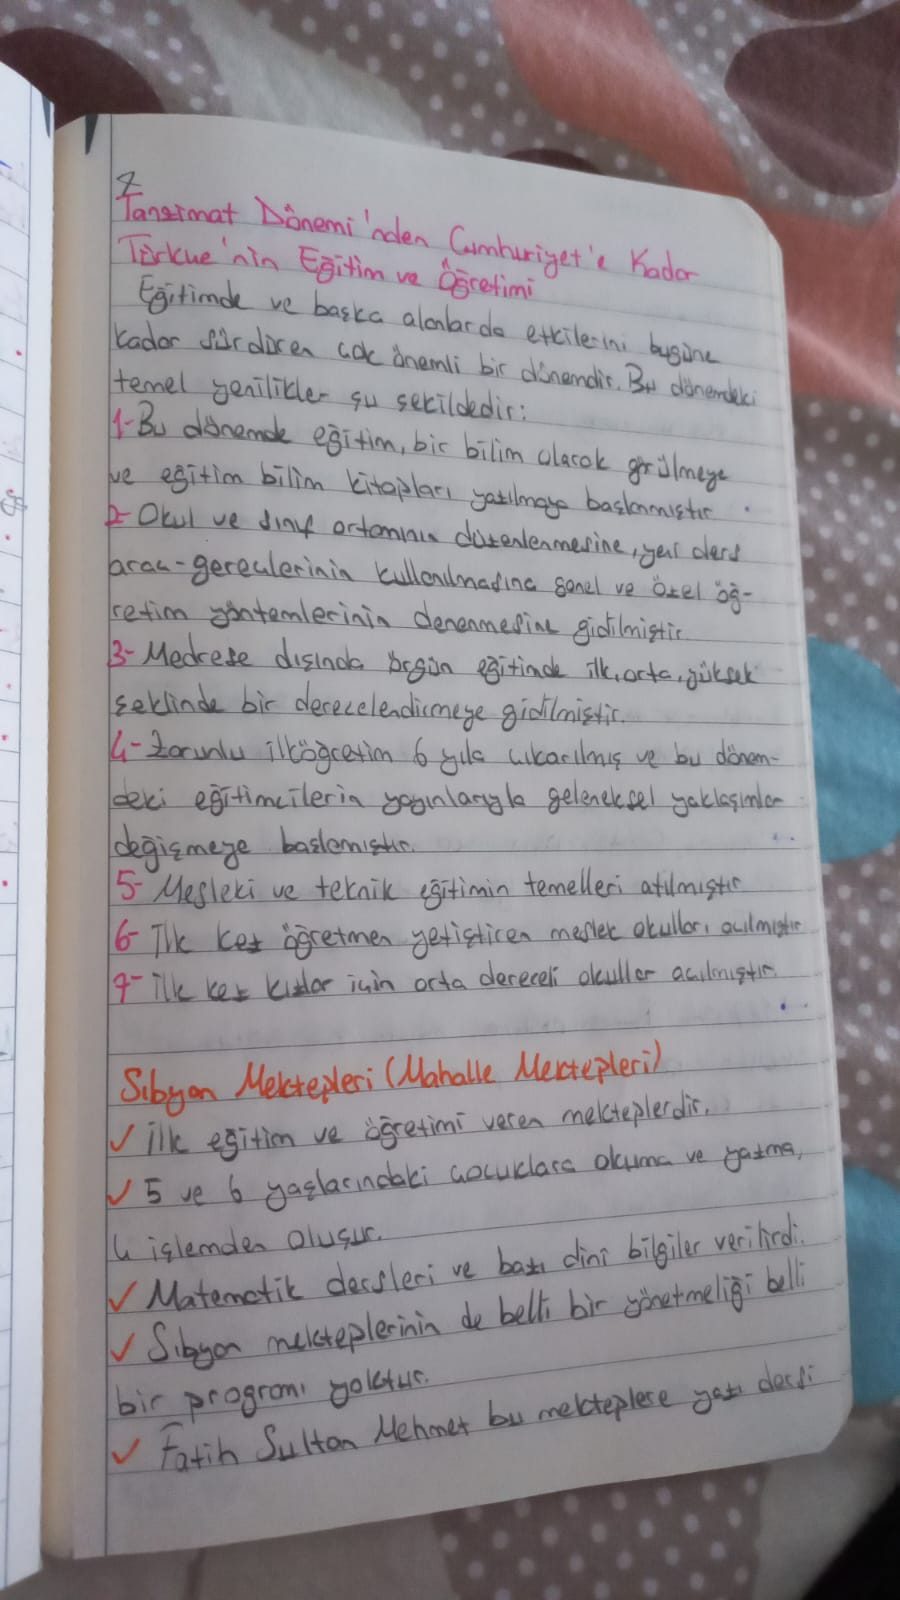 7
Tanzimat Dönemi'nden Cumhuriyet'e Kadar
Türkiye'nin Eğitim ve Öğretimi
Eğitimde ve başka alanlarda etkilerini bugüne
kadar sürdüren çok önemli bir dönemdir. Bu dönemdeki
temel yenilikler şu şekildedir:
1- Bu dönemde eğitim, bir bilim olarak görülmeye
ve eğitim bilim kitapları yazılmaya başlanmıştır.
2- Okul ve sınıf ortamının düzenlenmesine, yeni ders
araç-gereçlerinin kullanılmasına genel ve özel öğ-
retim yöntemlerinin denenmesine gidilmiştir.
3- Medrese dışında örgün eğitimde ilk, orta, yüksek
şeklinde bir derecelendirmeye gidilmiştir.
4- Zorunlu ilköğretim 6 yıla çıkarılmış ve bu dönem-
deki eğitimcilerin yayınlarıyla geleneksel yaklaşımlar
değişmeye başlamıştır.
5- Mesleki ve teknik eğitimin temelleri atılmıştır.
6- İlk kez öğretmen yetiştiren meslek okulları açılmıştır
7- İlk kez kızlar için orta dereceli okullar açılmıştır.
Sıbyan Mektepleri (Mahalle Mektepleri)
✓ İlk eğitim ve öğretimi veren mekteplerdir.
✓ 5 ve 6 yaşlarındaki çocuklara okuma ve yazma,
4 işlemden oluşur.
✓ Matematik dersleri ve bazı dini bilgiler verilirdi.
✓ Sıbyan mekteplerinin de belli bir yönetmeliği belli
bir programı yoktur.
✓ Fatih Sultan Mehmet bu mekteplere yazı dersi